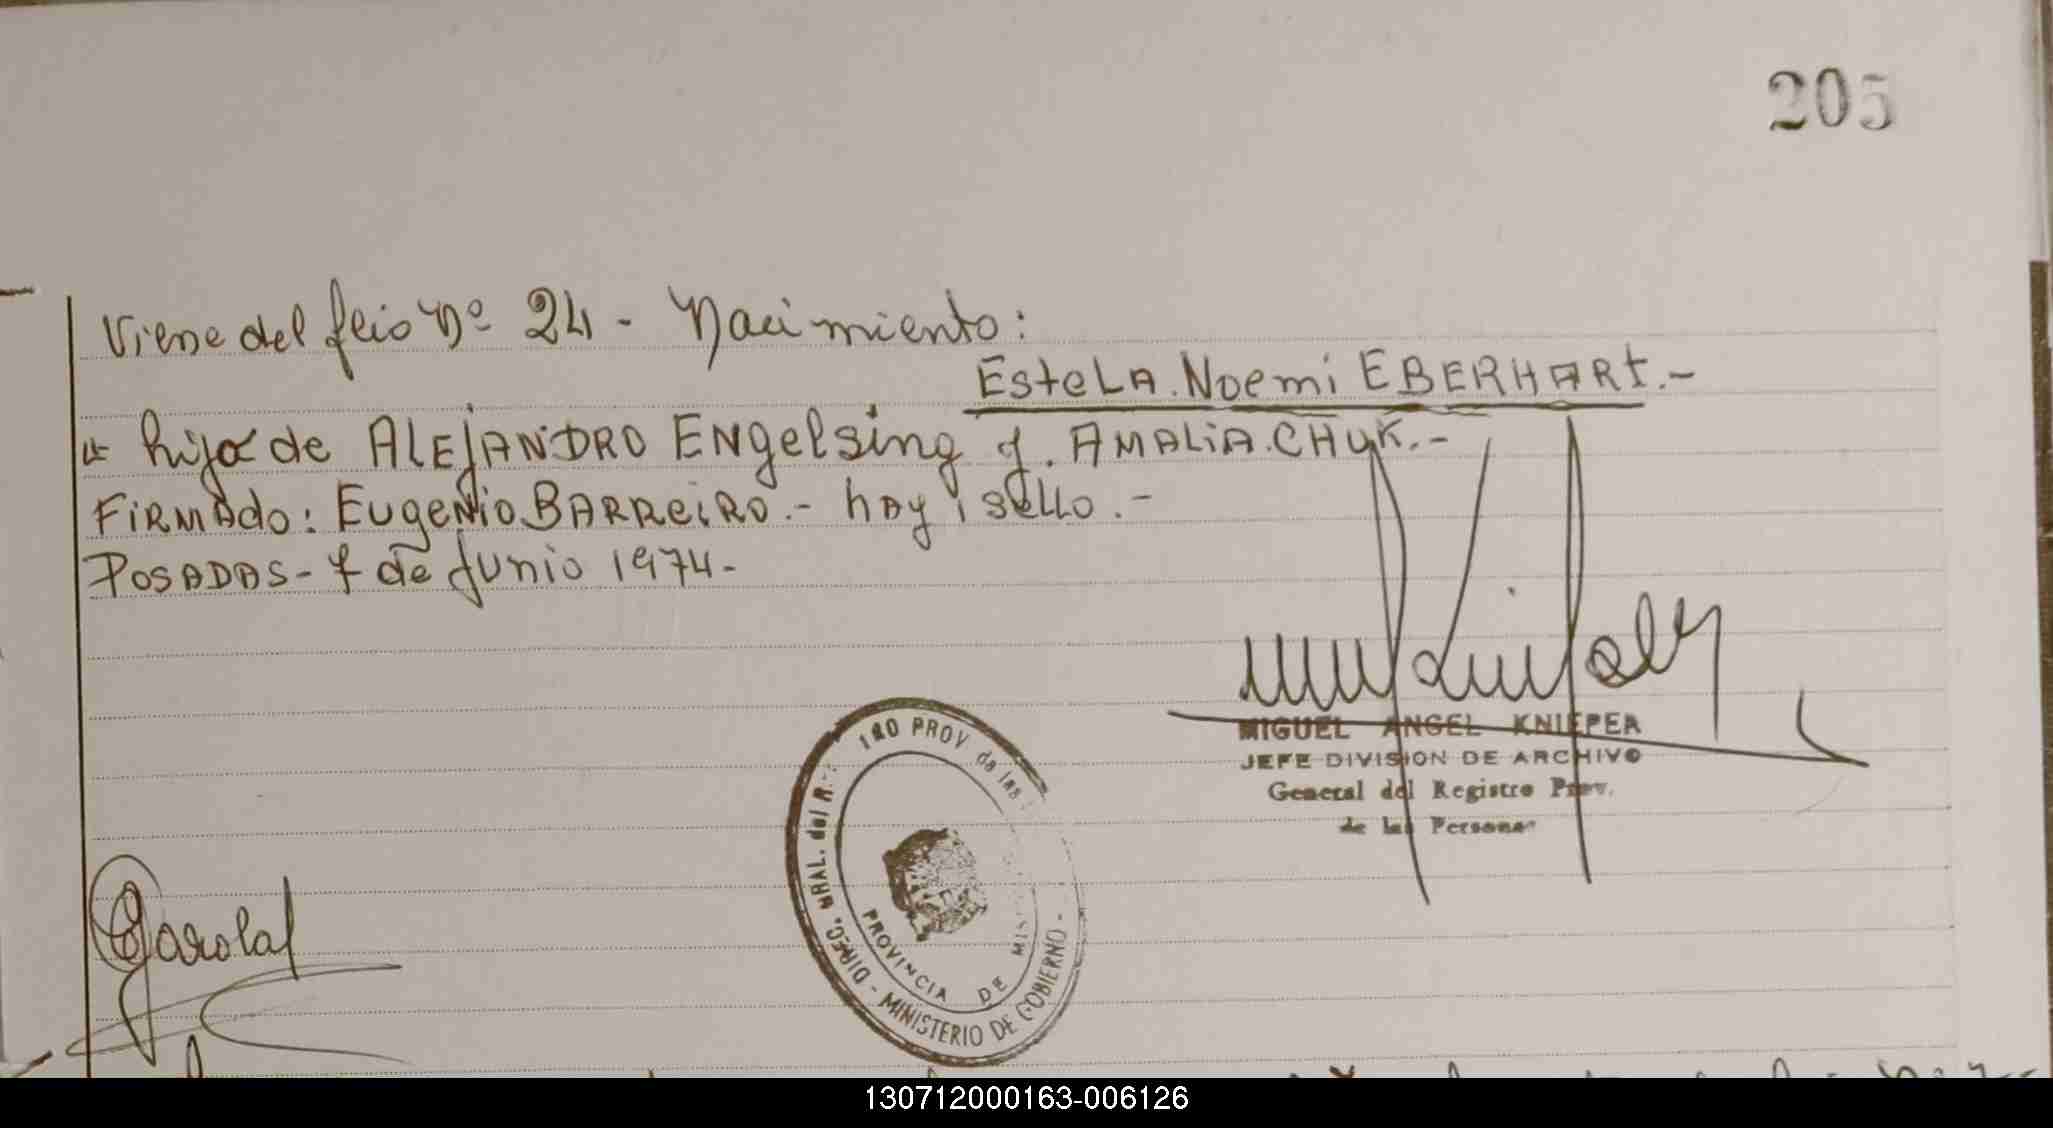 205
Viene del flio Nº 24 - Nacimiento:
EsteLA. Noemi EBERHARt.-
hija de ALEJANDRO ENgelsing y. AMALiA. CHYK.-
FiRMAdo: EugeNio BARReiRO.- hay 1 sello.-
POSADAS - 7 de Junio 1974-
MIGUEL ANGEL KNIEPER
JEFE DIVISION DE ARCHIVO
General del Registro Prov.
de las Personas
DIREC. GRAL. del R PROV de las
MINISTERIO DE GOBIERNO -
PROVINCIA DE MIS
130712000163-006126